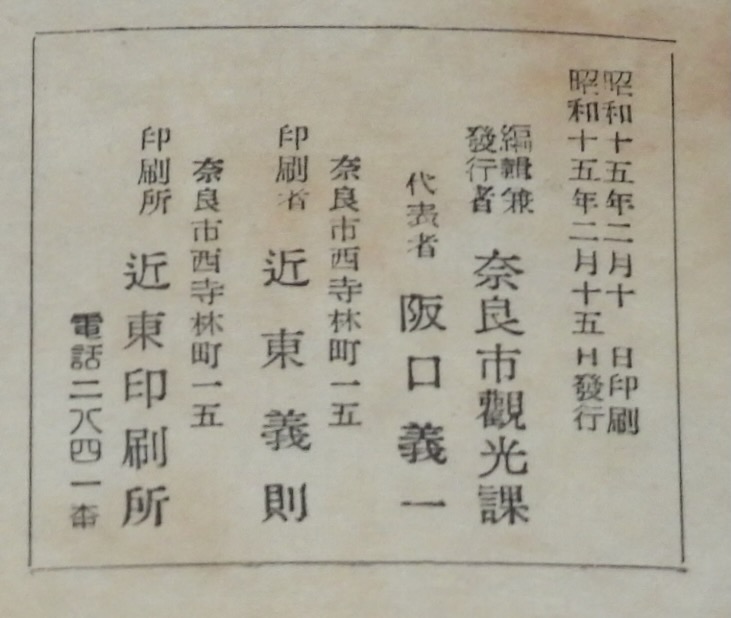 昭和十五年二月十 日印刷
昭和十五年二月十五日發行
編輯兼
發行者 奈良市觀光課
代表者 阪口義一
奈良市西寺林町一五
印刷者 近東義則
奈良市西寺林町一五
印刷所 近東印刷所
電話二八四一番